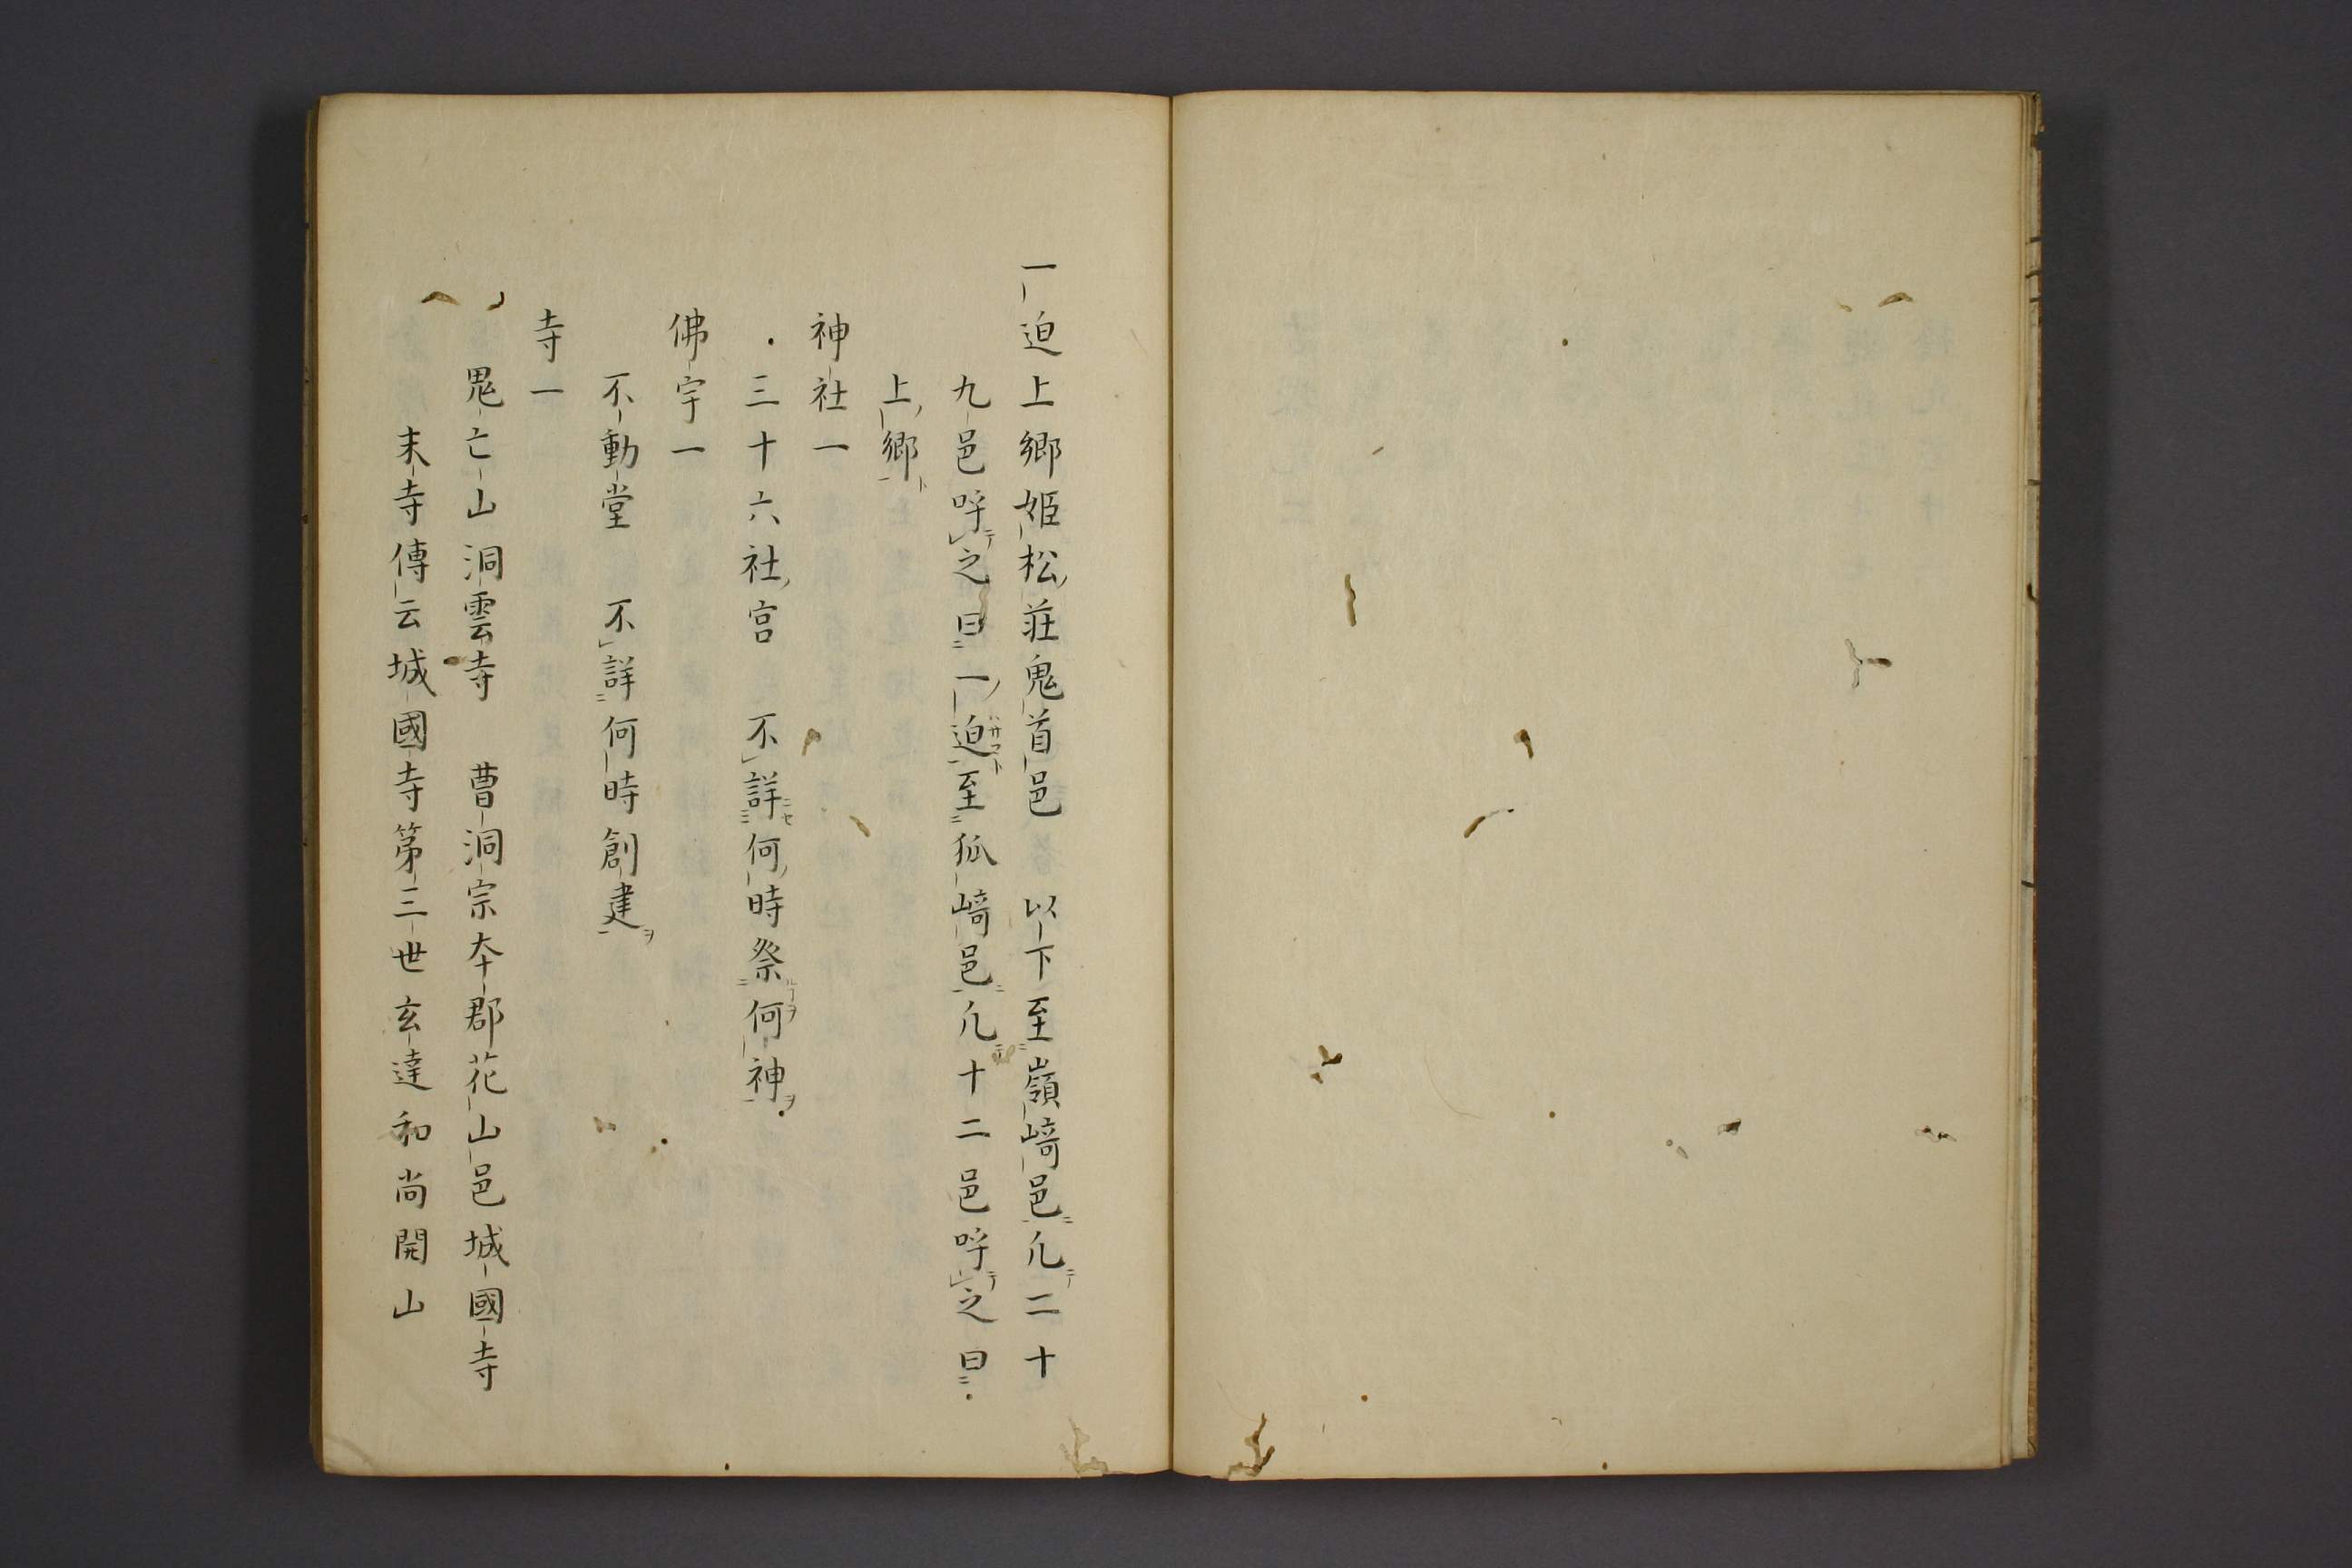 一迫上郷姫松荘鬼首邑 以下至嶺﨑邑凢二十
九邑呼之曰一迫至狐﨑邑凢十二邑呼之曰
上郷
神社一
三十六社宮 不詳何時祭何神
佛宇一
不動堂 不詳何時創建
寺一
鬼亡山洞雲寺 曹洞宗夲郡花山邑城國寺
末寺傳云城國寺第三世玄達和尚開山